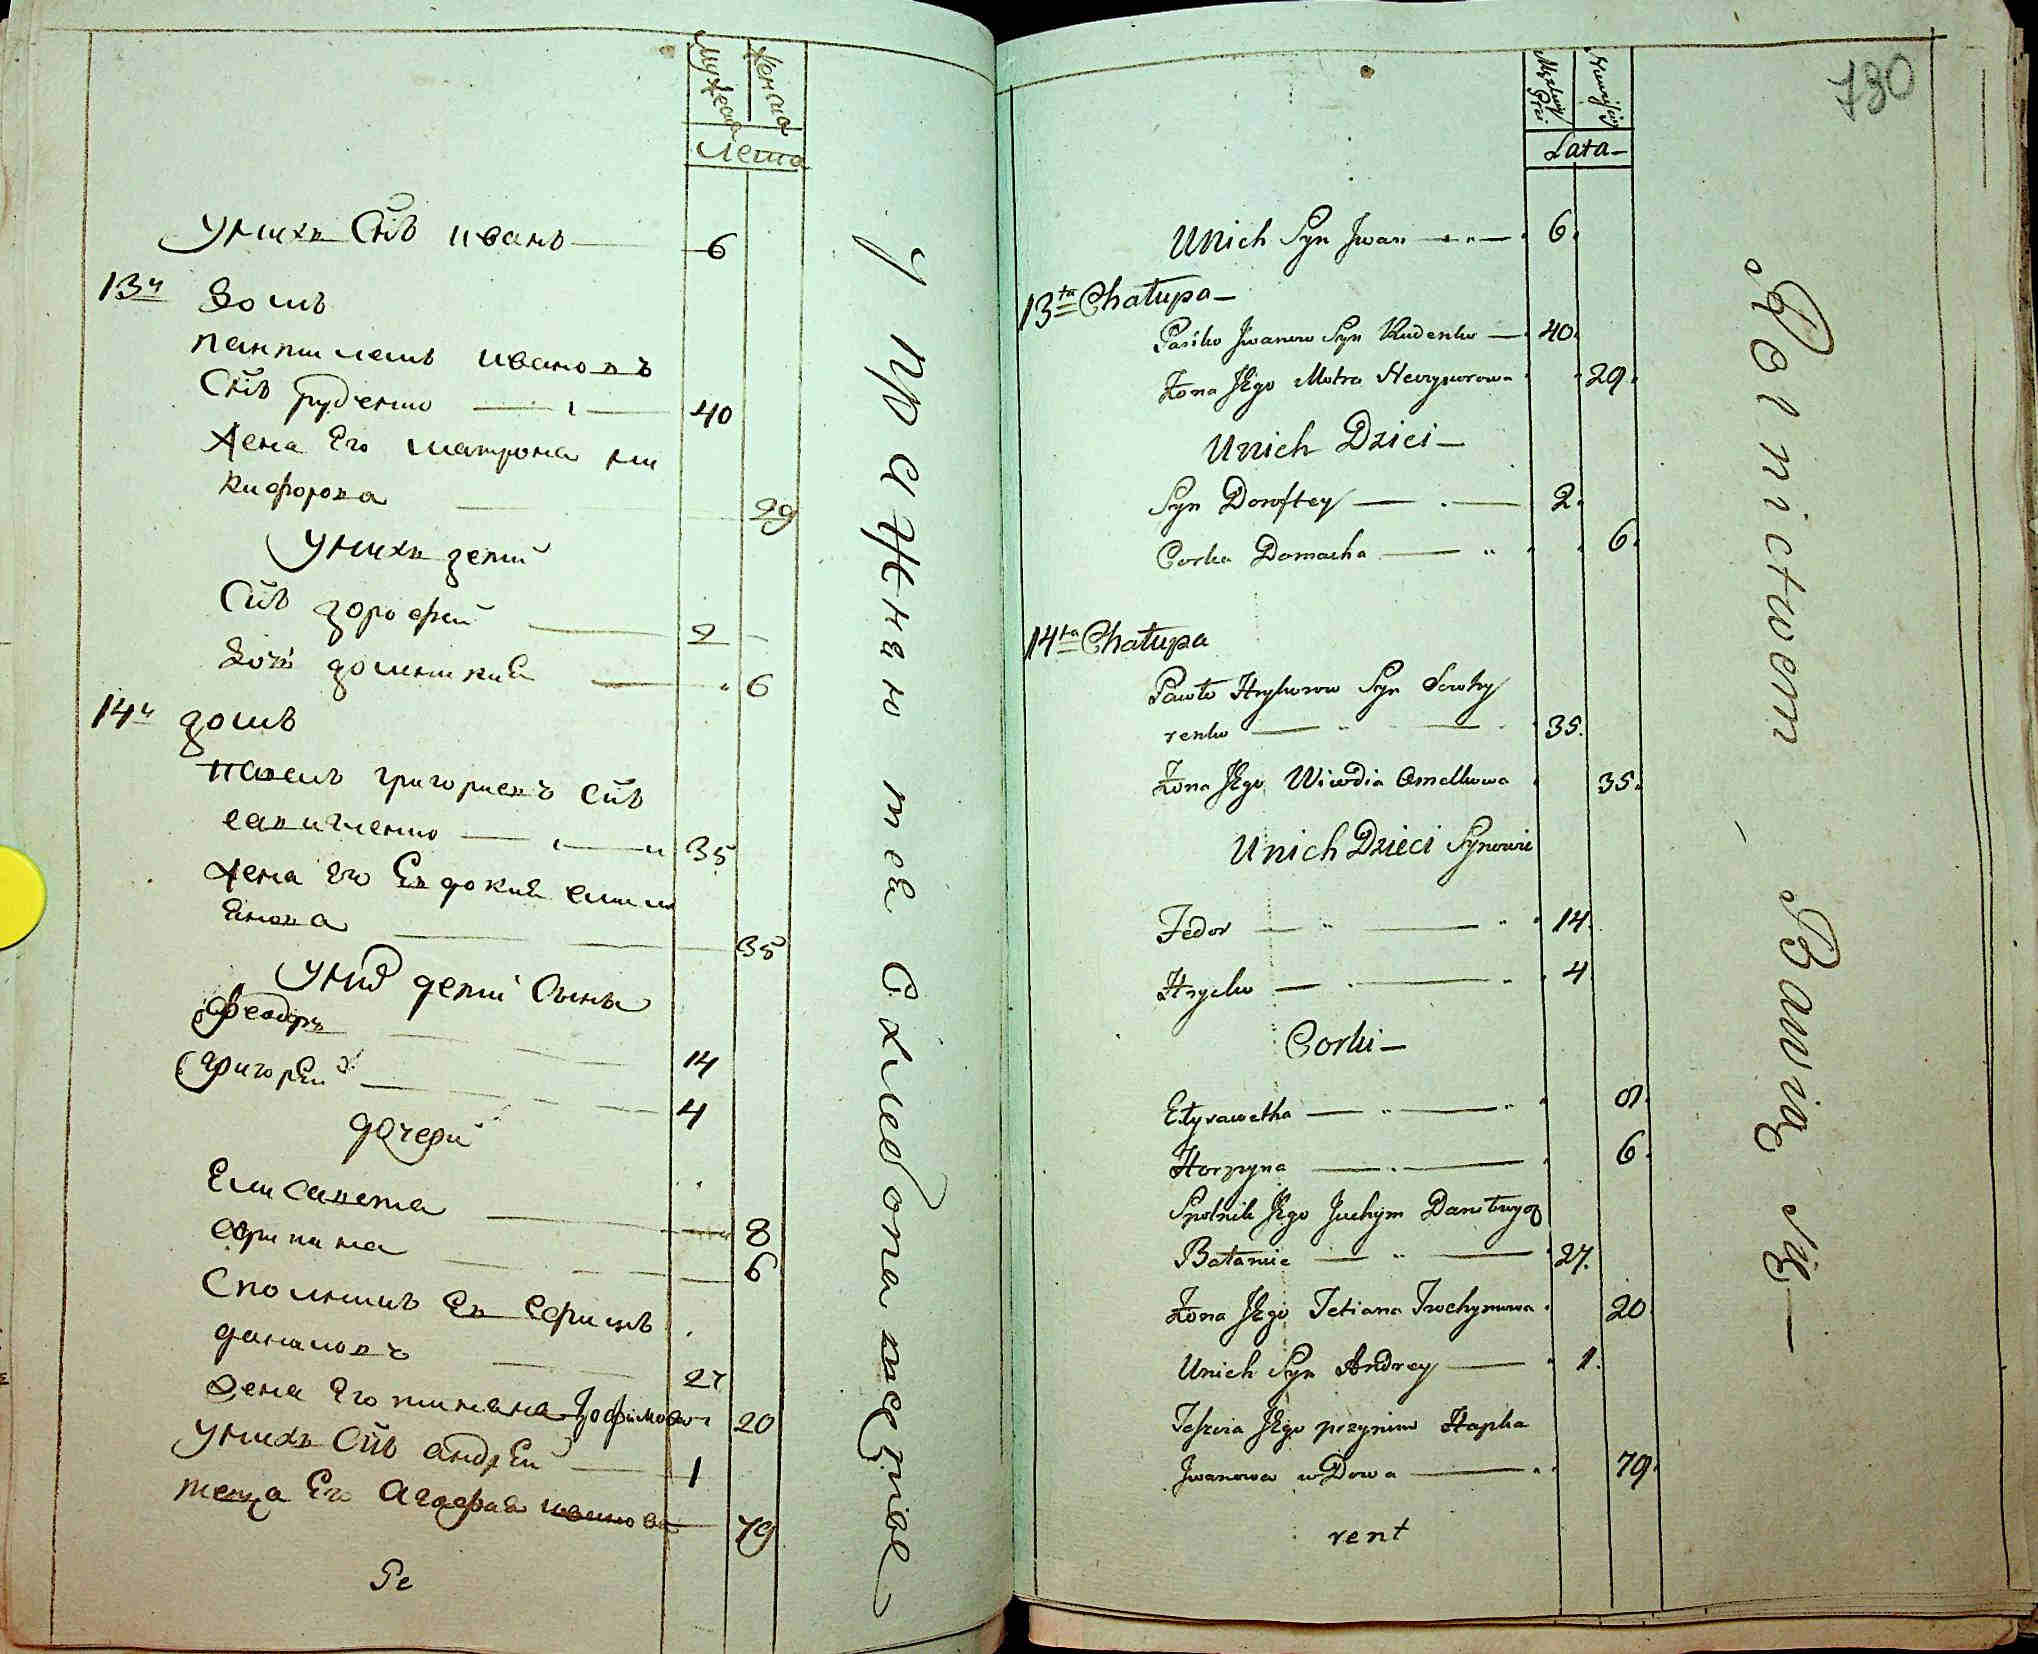 Мужеска
Женска
Лета
Уних Снъ иванъ 6
13й домъ
пантилемъ ивановъ
Снъ руденко 40
Жена Его матрона ни
кифорова 29
Уних дети
Снъ дорофей 2
Дочь домникия 6
14й домъ
павелъ григориевъ Снъ
савитченко 35
Жена Его Евдокия емил
янова 35
Уних дети Сыны
Феодоръ 14
григорей 4
дочери
Елисавета 8
Агрипина 6
Спольникъ Ев Ефимъ
даниловъ 27
Жена Его татиана трофимова 20
Уних Снъ андрей 1
теща Его агафия иванова 79
Ре
Упражняются Хлебопатество
730
Męskiey Płci
Lata
Unich Syn Jwan 6
13ta Chałupa
Pańko Jwanow Syn Rudenko 40
Żona Jego Motra Neczyporowa 29
Unich Dzieci
Syn Doroftey 2
Corka Domacha 6
14ta Chałupa
Pawło Hryhorow Syn Sawky
renko 35
Żona Jego Wiwdia Omelkowa 35
Unich Dzieci Synowie
Fedor 14
Hrycko 4
Corki
Ełyzawetha 8
Horpyna 6
Spolnik Jego Juchym Daniłowy
Batanie 27
Żona Jego Tetiana Trochymowa 20
Unich Syn Andrey 1
Teszcia Jego przynim Hapka
Jwanowa wDowa 79
rent
Rolnictwem Bawią się